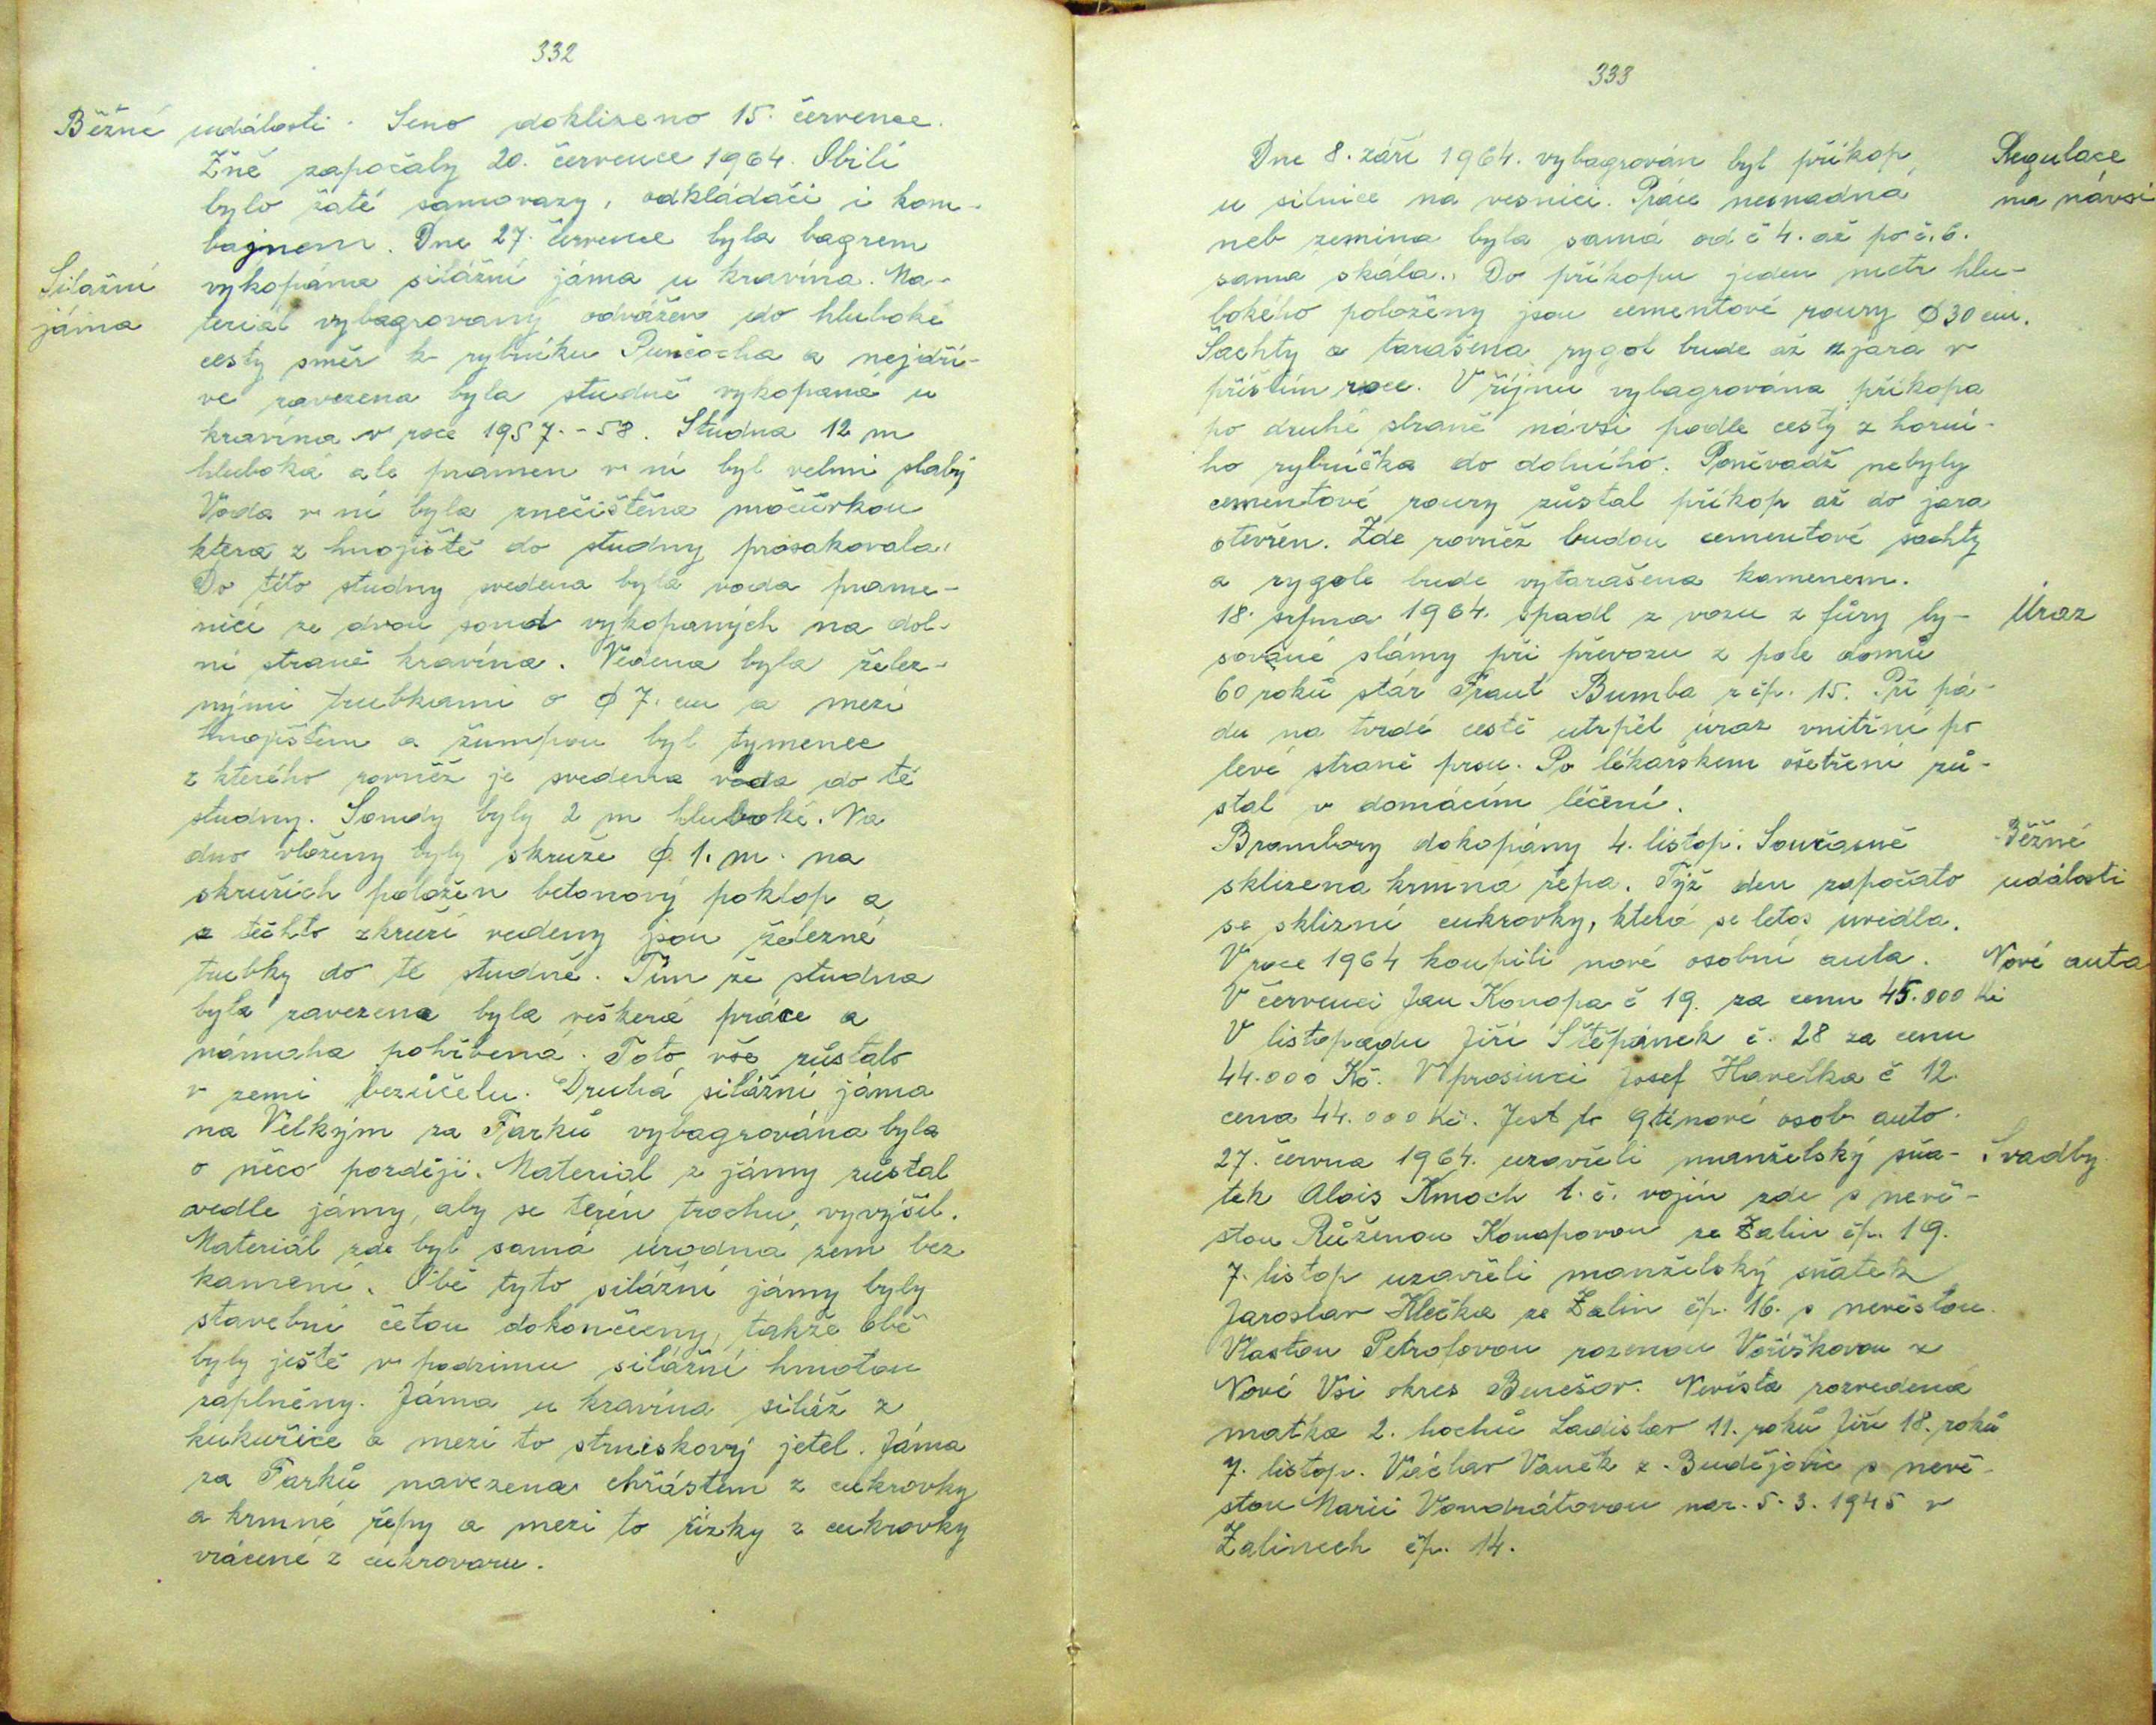 332
Běžné události. Seno doklizeno 15. července.
Žně započaly 20. července 1964. Obilí
bylo žaté samovazy, odkládači i kom-
bajnem. Dne 27. července byla bagrem
Silažní vykopána silážní jáma u kravína. Ma-
jáma teriál vybagrovaný odvážen do hluboké
cesty směr k rybníku Punčocha a nejdří-
ve zavezena byla studně vykopaná u
kravína v roce 1957.-58. Studna 12 m
hluboká ale pramen v ní byl velmi slabý
Voda v ní byla znečištěna močůrkou
která z hnojiště do studny prosakovala.
Do této studny svedena byla voda prame-
nící ze dvou sond vykopaných na dol-
ní straně kravína. Vedena byla želez-
nými trubkami o ϕ 7. cm a mezi
hnojištěm a žumpou byl tymenec
z kterého rovněž je svedena voda do té
studny. Sondy byly 2 m hluboké. Na
dno vloženy byly skruže ϕ 1. m. na
skružích položen betonový poklop a
z těchto zkruží vedeny jsou železné
trubky do té studně. Tím že studna
byla zavezena byla veškerá práce a
námaha pohřbená. Toto vše zůstalo
v zemi bezúčelu. Druhá silážní jáma
na Velkým za Farků vybagrována byla
o něco později. Material z jámy zůstal
vedle jámy, aby se terén trochu vyvýšil.
Materiál zde byl samá úrodná zem bez
kamení. Obě tyto silážní jámy byly
stavební četou dokončeny, takže obě
byly ještě v podzimu silážní hmotou
zaplněny. Jáma u kravína siláž z
kukuřice a mezi to strniskový jetel. Jáma
za Farků navezena chrástem z cukrovky
a krmné řepy a mezi to řízky z cukrovky
vrácené z cukrovaru.
333
Dne 8. září 1964. vybagrován byl příkop Regulace
u silnice na vesnici. Práce nesnadná na návsi
neb zemina byla samá od č 4. až po č. 6.
sama skála. Do příkopu jeden metr hlu-
bokého položeny jsou cementové roury ϕ 30 cm.
Šachty a tarašena rygol bude až z jara v
příštím roce. V říjnu vybagrována příkopa
po druhé straně návsi podle cesty z horní-
ho rybníčka do dolního. Poněvadž nebyly
cementové roury zůstal příkop až do jara
otevřen. Zde rovněž budou cementové šachty
a rygole bude vytarašena kamenem.
18. srpna 1964. spadl z vozu z fůry ly- Úraz
sované slámy při převozu z pole domů
60 roků stár Frant Bumba z čp. 15. Při pá-
du na tvrdé cestě utrpěl úraz vnitřní po
levé straně prsu. Po lékařském ošetření zů-
stal v domácím léčení.
Brambory dokopány 4. listop. Současně Běžné
sklizena krmná řepa. Týž den započato události
se sklizní cukrovky, která se letos uvedla.
V roce 1964 koupili nové osobní auta. Nové auta
V červenci Jan Konopa č 19. za cenu 45.000 Kč
V listopadu Jiří Štěpánek č. 28 za cenu
44.000 Kč. V prosinci Josef Havelka č 12.
cena 44.000 Kč. Jest to 9té nové osob auto.
27. června 1964. uzavřeli manželský sňa- Svadby
tek Alois Kmoch t. č. vojín zde s nevě-
stou Růženou Konopovou ze Žalin čp. 19.
7. listop uzavřeli manželský sňatek
Jaroslav Klečka ze Žalin čp. 16. s nevěstou
Vlastou Petrofovou rozenou Voříškovou z
Nové Vsi okres Benešov. Nevěsta rozvedená
matka 2. hochů Ladislav 11. roků Jiří 18. roků
7. listop. Václav Vaněk z Budějovic s nevě-
stou Marií Vondrátovou nar. 5. 3. 1945 v
Žalinech čp. 14.